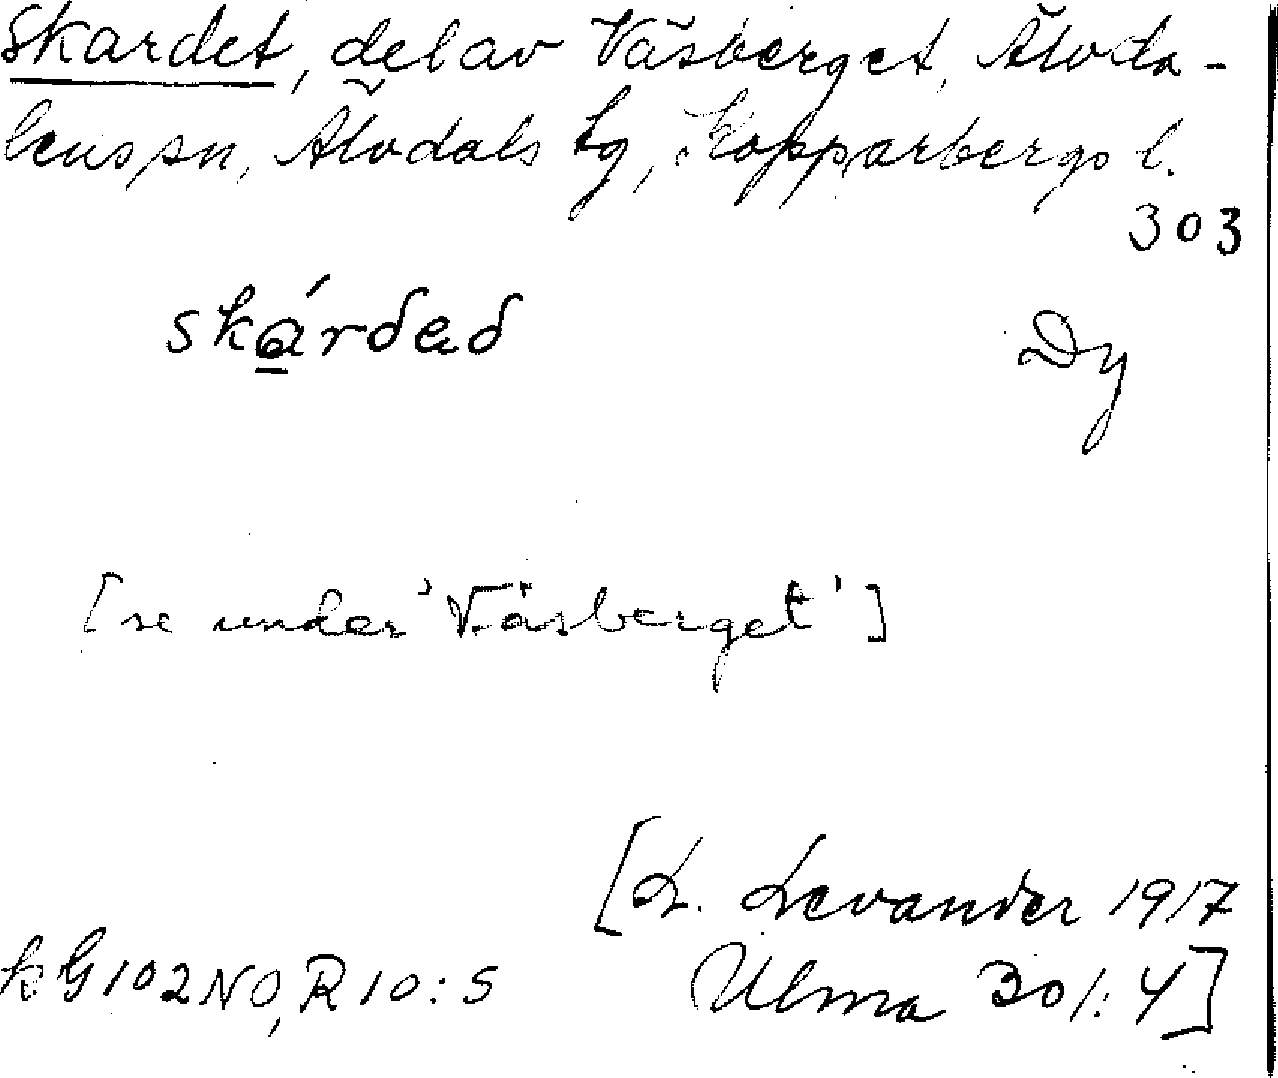 Skardet, del av Väsberget, Älvda-
lens sn, Älvdals tg, Kopparbergs l.
303
skárdad Dy
[se under 'Väsberget']
[L. Levander 1917
kG102NO, R10:5 Ulma 301:4]